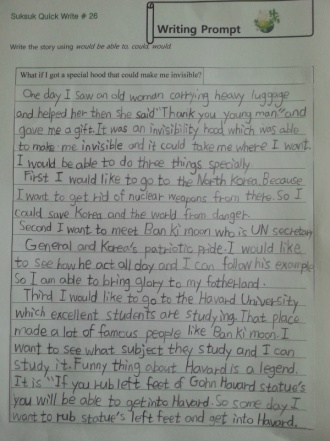 Suksuk Quick Write # 26
Writing Prompt
Write the story using would be able to, could, would.
What if I got a special hood that could make me invisible?
One day I saw an old woman carrying heavy luggage
and helped her then she said "Thank you young man" and
gave me a gift. It was an invisibility hood which was able
to make me invisible and it could take me where I want.
I would be able to do three things specially.
First I would like to go to the North Korea. Because
I want to get rid of nuclear weapons from there. So I
could save Korea and the world from danger.
Second I want to meet Ban ki moon who is UN secretary
General and Korea's patriotic pride. I would like
to see how he act all day and I can follow his example
So I am able to bring glory to my fatherland.
Third I would like to go to the Havard University
which excellent students are studying. That place
made a lot of famous people like Ban ki moon. I
want to see what subject they study and I can
study it. Funny thing about Havard is a legend.
It is "If you rub left feet of Gohn Havard statue's
you will be able to get into Havard. So some day I
want to rub statue's left feet and get into Havard.